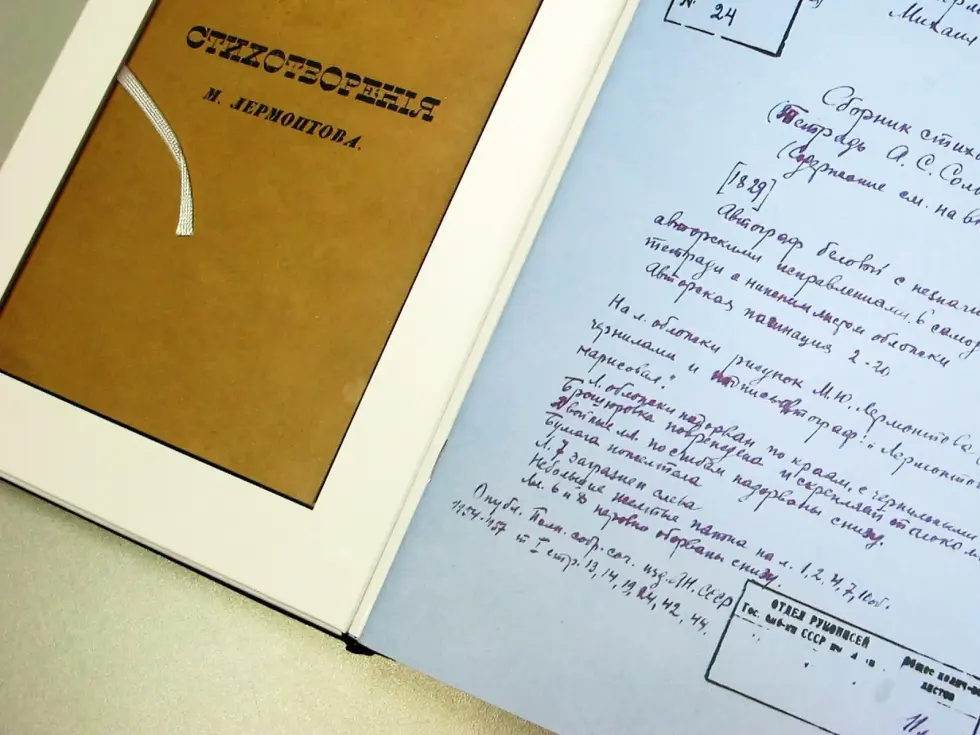 СТИХОТВОРЕНІЯ
М. ЛЕРМОНТОВА.
№ 24
Михаил
Сборник стихо
(Тетрадь А. С. Соло
(Содержание см. на
[1829]
Автограф беловой с незначи
авторскими исправлениями. В самод
тетради с нижним листом обложки
Авторская пагинация 2-20
На л. обложки рисунок М. Ю. Лермонтова
чернилами и автограф: "Лермонтов
нарисовал."
Л. обложки надорван по краям, с чернильными
Брошюровка повреждена и скрепляет только л.
Двойные лл. по сгибам надорваны снизу.
Бумага пожелтела
Л. 7 загрязнен слева
Небольшие желтые пятна на л. 1, 2, 4, 7, 10об.
Лл. 6 и 8 неровно оборваны снизу.
Опубл. Полн. собр. соч. изд. АН. СССР
1954-1957 т I стр. 13, 14, 19, 24, 42, 44.
ОТДЕЛ РУКОПИСЕЙ
Гос. биб-ки СССР им
листов
11